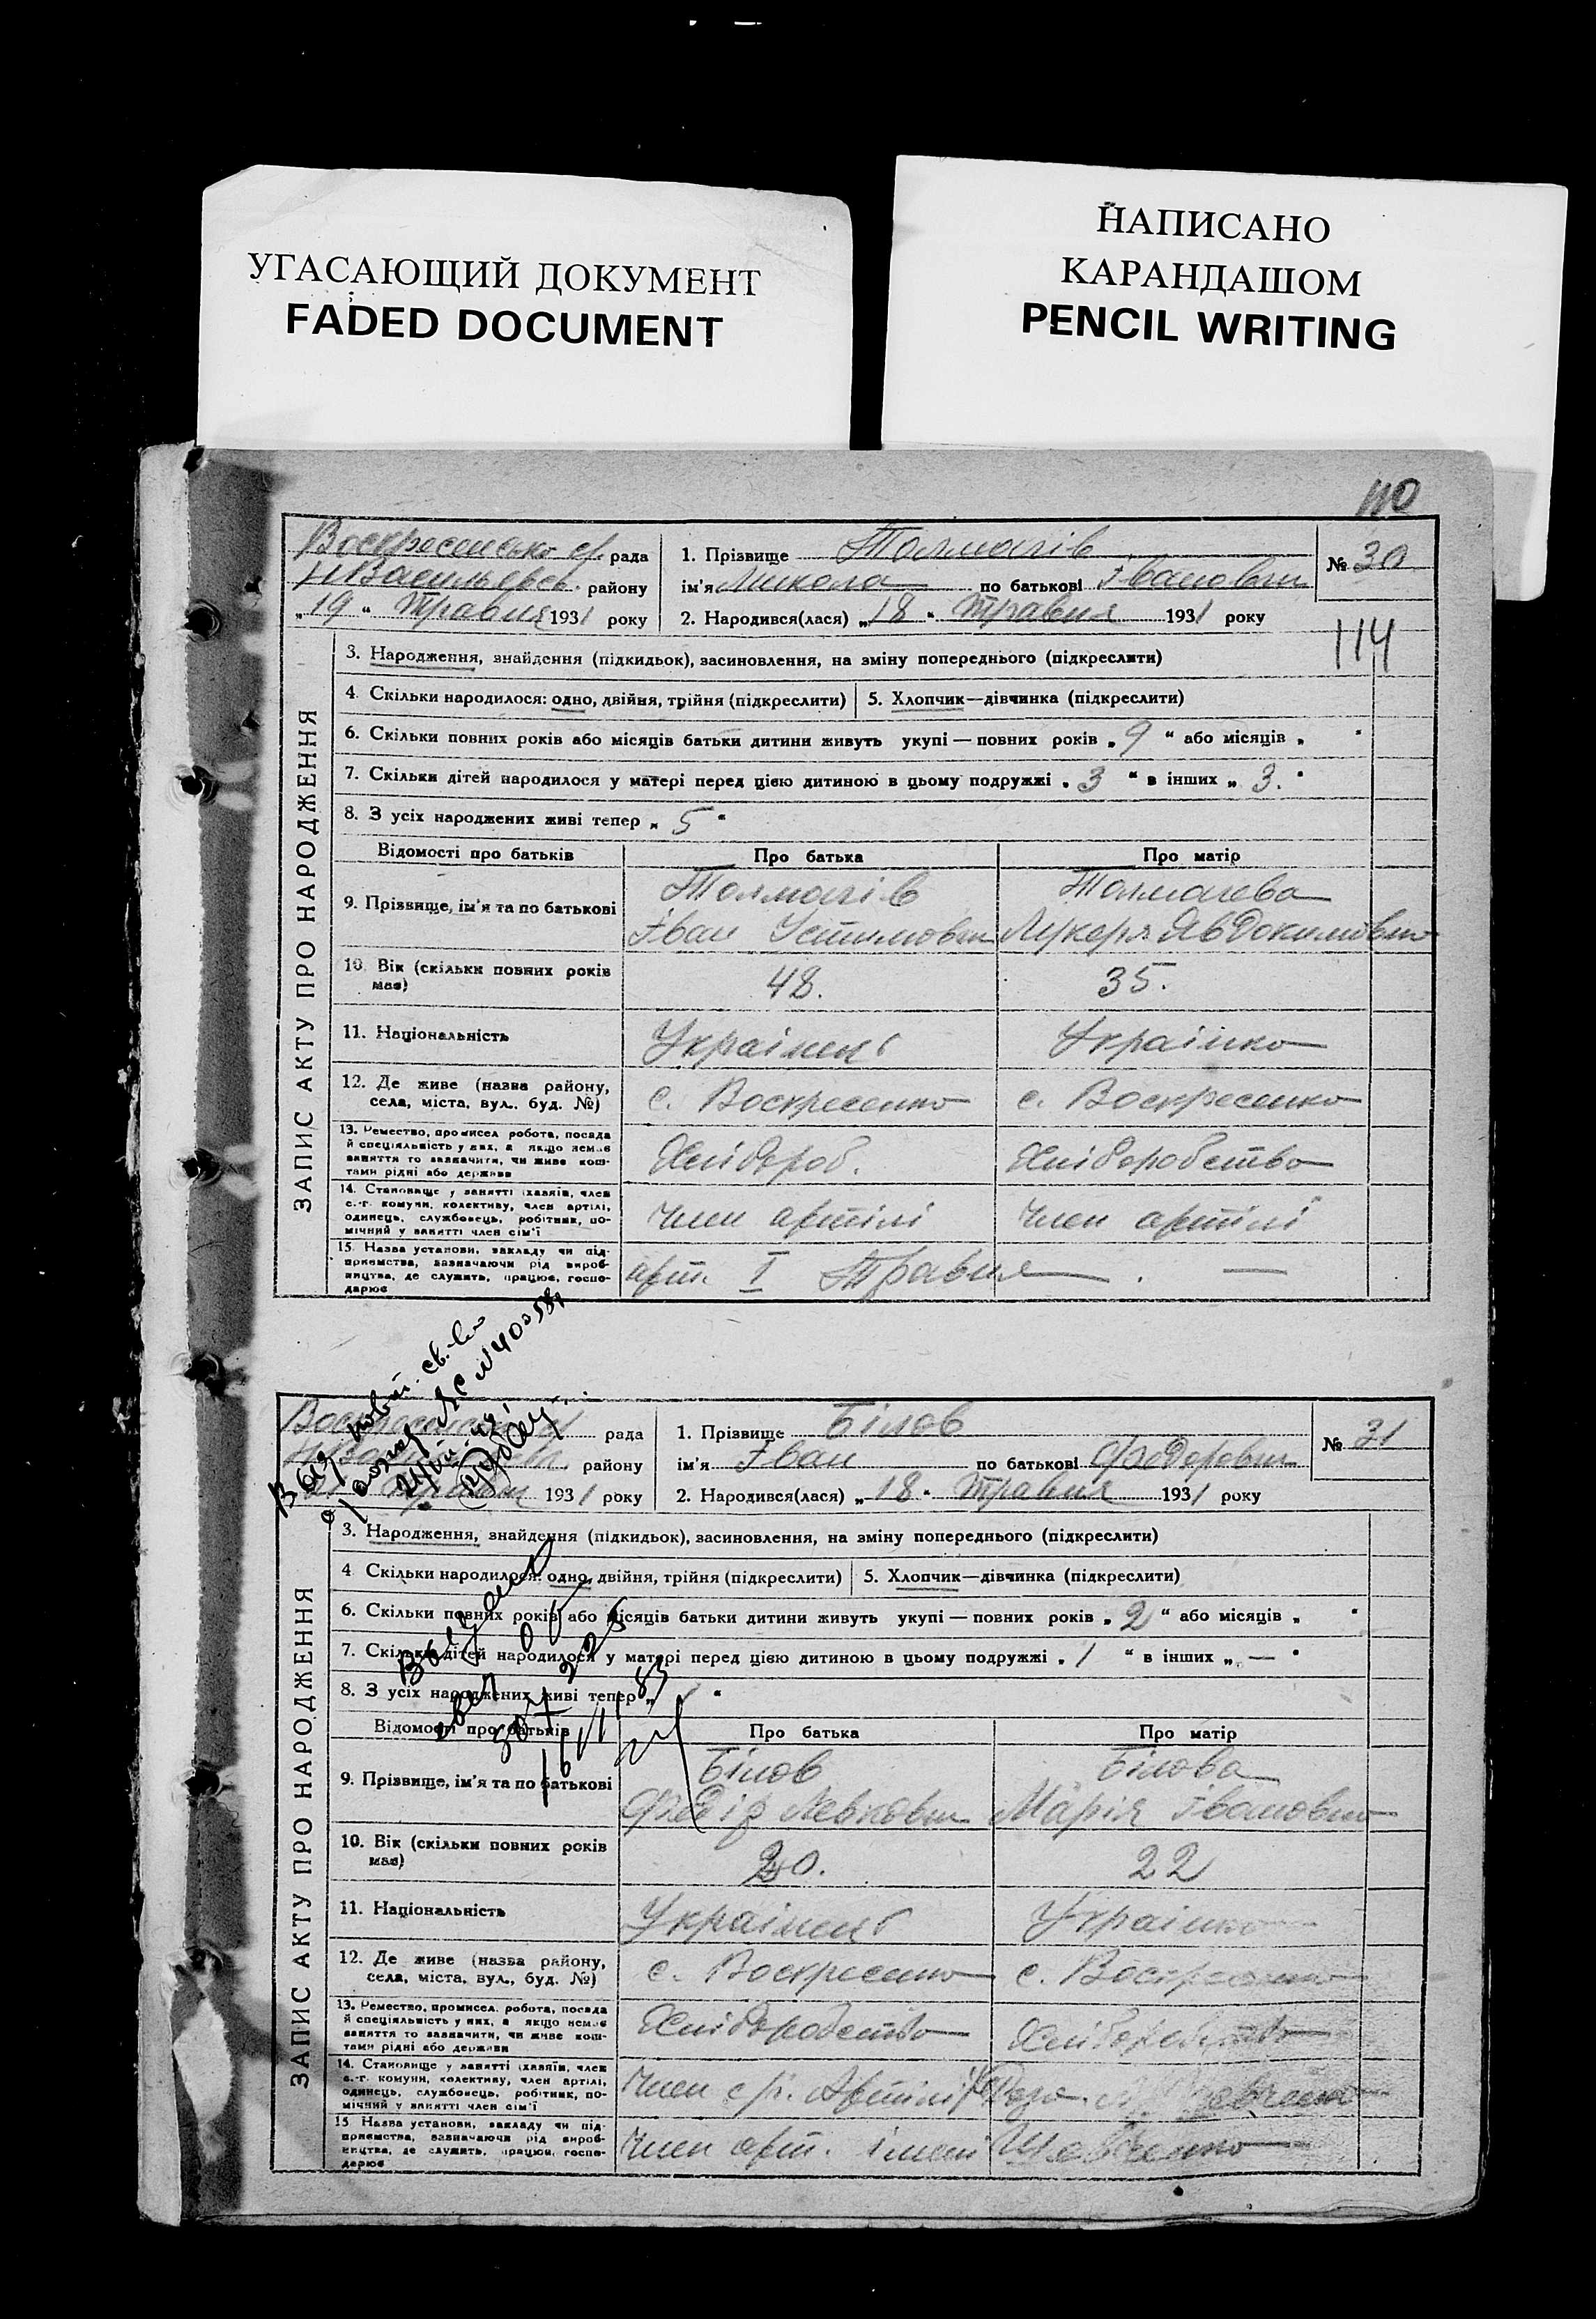 УГАСАЮЩИЙ ДОКУМЕНТ
FADED DOCUMENT
НАПИСАНО
КАРАНДАШОМ
PENCIL WRITING
110
ЗАПИС АКТУ ПРО НАРОДЖЕННЯ
Воскресенсько с/. рада
Н Васильевс. району
„19“ Травня 1931 року
1. Прізвище Толмачів
ім'я Микола по батькові Іванович
№ 30
2. Народився(лася) „18“ Травня 1931 року
114
3. Народження, знайдення (підкидьок), засиновлення, на зміну попереднього (підкреслити)
4. Скільки народилося: одно, двійня, трійня (підкреслити) 5. Хлопчик—дівчинка (підкреслити)
6. Скільки повних років або місяців батьки дитини живуть укупі — повних років „9“ або місяців „ “
7. Скільки дітей народилося у матері перед цією дитиною в цьому подружжі „3“ в інших „3.“
8. З усіх народжених живі тепер „5“
Відомості про батьків Про батька Про матір
9. Прізвище, ім'я та по батькові
Толмачів Толмачева
Іван Устимович Лукеря Явдокимовна
10. Вік (скільки повних років має) 48. 35.
11. Національність Українець Українка
12. Де живе (назва району,
села, міста, вул.. буд. №) с. Воскресенка с. Воскресенка
13. Ремество, промисел робота, посада
й спеціяльність у них, а якщо немає
заняття то зазначити, чи живе кош-
тами рідні або держави
Хлібороб. Хліборобство
14. Становище у занятті (хазяїн, член
с.-г. комуни, колективу, член артілі,
одинець, службовець, робітник, по-
мічний у занятті член сім'ї
Член артілі Член артілі
15. Назва установи, закладу чи під-
приємства, зазначаючи рід вироб-
ництва, де служить, працює, госпо-
дарює
арт. І Травня —
№ 400584
ЗАПИС АКТУ ПРО НАРОДЖЕННЯ
рада
району
1931 року
1. Прізвище Білов
ім'я Іван по батькові Федорович
№ 31
2. Народився(лася) „18“ Травня 1931 року
3. Народження, знайдення (підкидьок), засиновлення, на зміну попереднього (підкреслити)
4 Скільки народилося: одно, двійня, трійня (підкреслити) 5. Хлопчик—дівчинка (підкреслити)
6. Скільки повних років або місяців батьки дитини живуть укупі — повних років „2“ або місяців „ “
7. Скільки дітей народилося у матері перед цією дитиною в цьому подружжі „1“ в інших „—“
8. З усіх народжених живі тепер „ “
Відомості про батьків Про батька Про матір
9. Прізвище, ім'я та по батькові
Білов Білова
Федір Левкович Марія Івановна
10. Вік (скільки повних років має) 20. 22
11. Національність Українець Українка
12. Де живе (назва району,
села, міста, вул., буд. №) с. Воскресенка с. Воскресенка
13. Ремество, промисел. робота, посада
й спеціяльність у них, а якщо немає
заняття то зазначити, чи живе кош-
тами рідні або держави
Хліборобство Хліборобство
14. Становище у занятті (хазяїн, член
с.-г. комуни, колективу, член артілі,
одинець, службовець, робітник, по-
мічний у занятті член сім'ї
Член Артілі
15 Назва установи, закладу чи під-
приємства, зазначаючи рід вироб-
ництва, де служить, працює, госпо-
дарює
Член арт. імені Шевченко